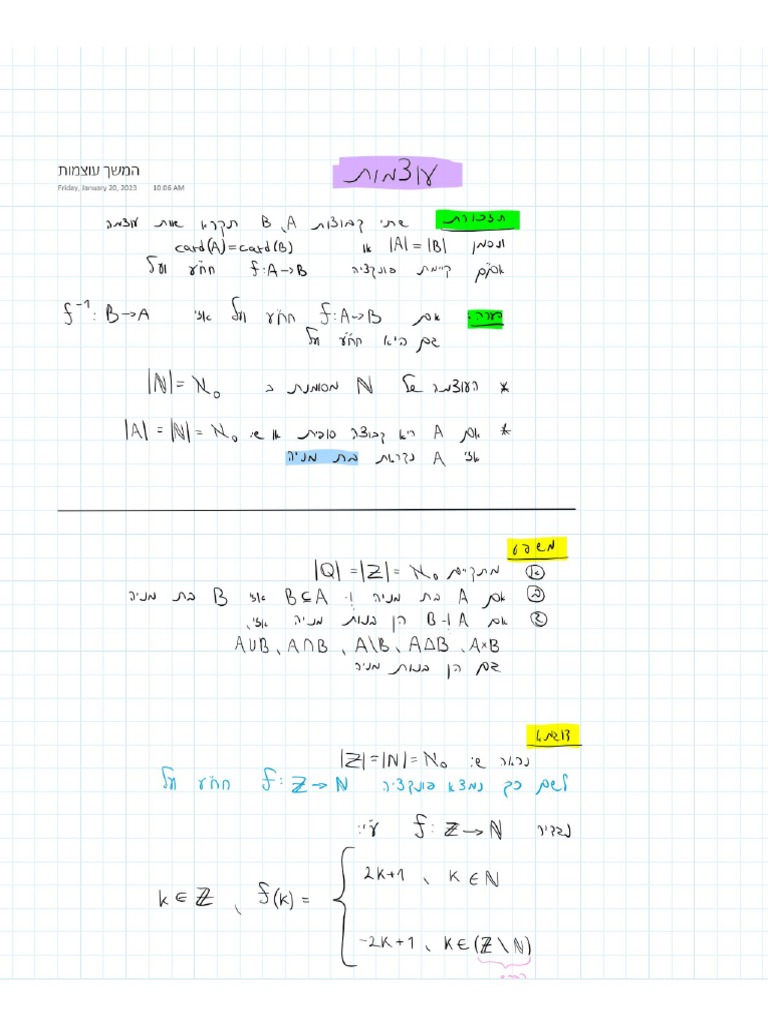 המשך עוצמות
Friday, January 20, 2023 10:06 AM
עוצמות
תזכורת שתי קבוצות A, B תקרא שוות עוצמה
ונסמן |A| = |B| או card(A)=card(B)
אם"ם קיימת פונקציה f:A→B חח"ע ועל
הערה: אם f:A→B חח"ע ועל אזי f⁻¹: B→A
גם היא חח"ע ועל
* העוצמה של ℕ מסומנת ב |ℕ| = ℵ₀
* אם A היא קבוצה סופית או ש: |A| = |ℕ| = ℵ₀
אזי A נקראת בת מניה
משפט
① מתקיים |ℚ| = |ℤ| = ℵ₀
② אם A בת מניה ו- B⊆A אזי B בת מניה
③ אם A ו-B הן בנות מניה אזי,
A∪B, A∩B, A\B, A△B, A×B
גם הן בנות מניה
דוגמא
נראה ש: |ℤ| = |ℕ| = ℵ₀
לשם כך נמצא פונקציה f: ℤ→ℕ חח"ע ועל
נגדיר f: ℤ→ℕ ע"י:
k∈ℤ, f(k) = { 2k+1, k∈ℕ
-2k+1, k∈(ℤ\ℕ)